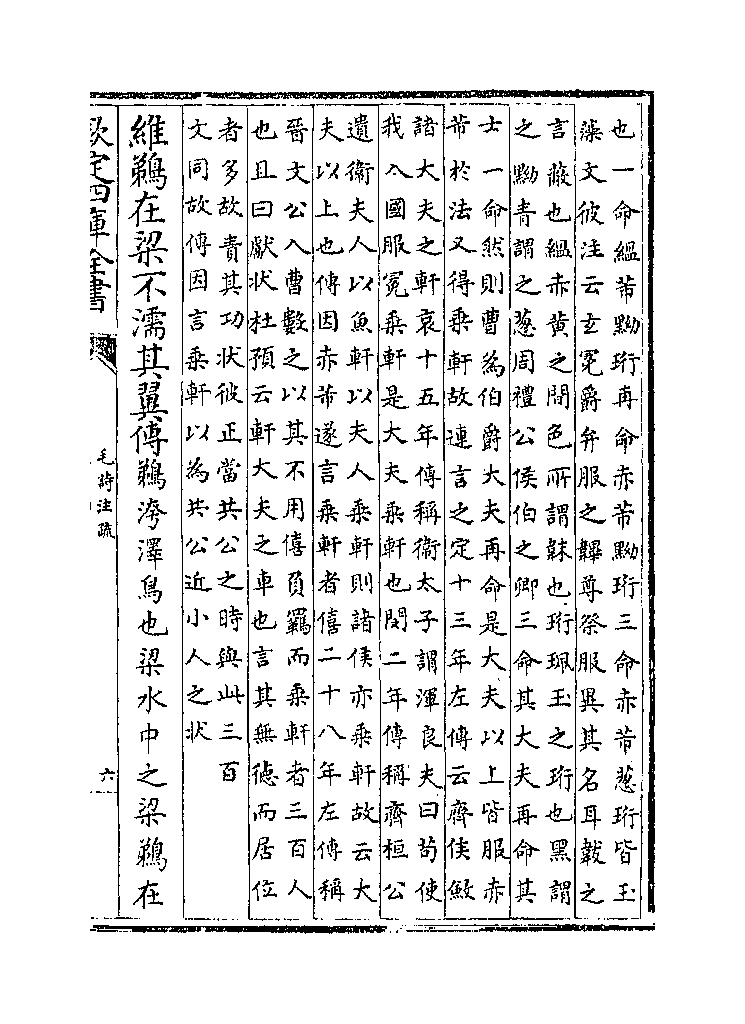 也一命緼芾黝珩再命赤芾黝珩三命赤芾葱珩皆玉
藻文彼注云玄冕爵弁服之韠尊祭服異其名耳韍之
言蔽也緼赤黄之間色所謂韎也珩珮玉之珩也黑謂
之黝青謂之葱周禮公侯伯之卿三命其大夫再命其
士一命然則曹為伯爵大夫再命是大夫以上皆服赤
芾於法又得乗軒故連言之定十三年左傳云齊侯斂
諸大夫之軒哀十五年傳稱衛太子謂渾良夫曰茍使
我入國服冕乗軒是大夫乗軒也閔二年傳稱齊桓公
遺衛夫人以魚軒以夫人乗軒則諸侯亦乗軒故云大
夫以上也傳因赤芾遂言乗軒者僖二十八年左傳稱
晉文公入曹數之以其不用僖負羈而乗軒者三百人
也且曰獻状杜預云軒大夫之車也言其無徳而居位
者多故責其功状彼正當共公之時與此三百
文同故傳因言乗軒以為共公近小人之状
維鵜在梁不濡其翼傳鵜洿澤鳥也梁水中之梁鵜在
欽定四庫全書
毛詩注疏
六